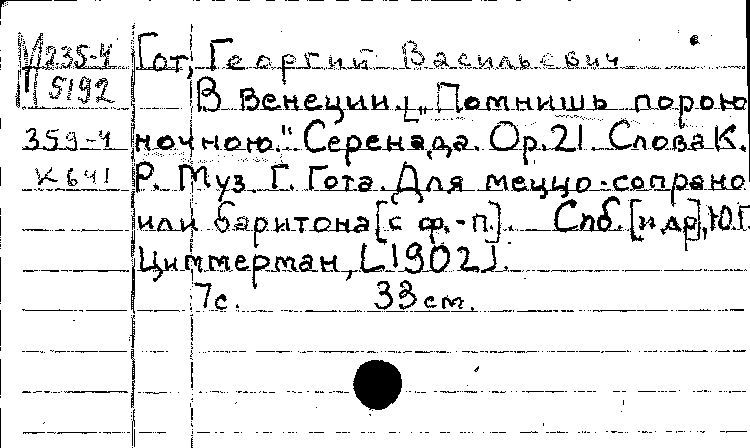 М 235-4 Гот, Георгий Васильевич
5192 В Венеции. [„Помнишь порою
359-4 ночною." Серенада. Ор. 21. Слова К.
К 641 Р. Муз. Г. Гота. Для меццо-сопрано
или баритона [с ф.-п.]. Спб. [и др], Ю.Г.
Циммерман, [1902].
7с. 33 см.